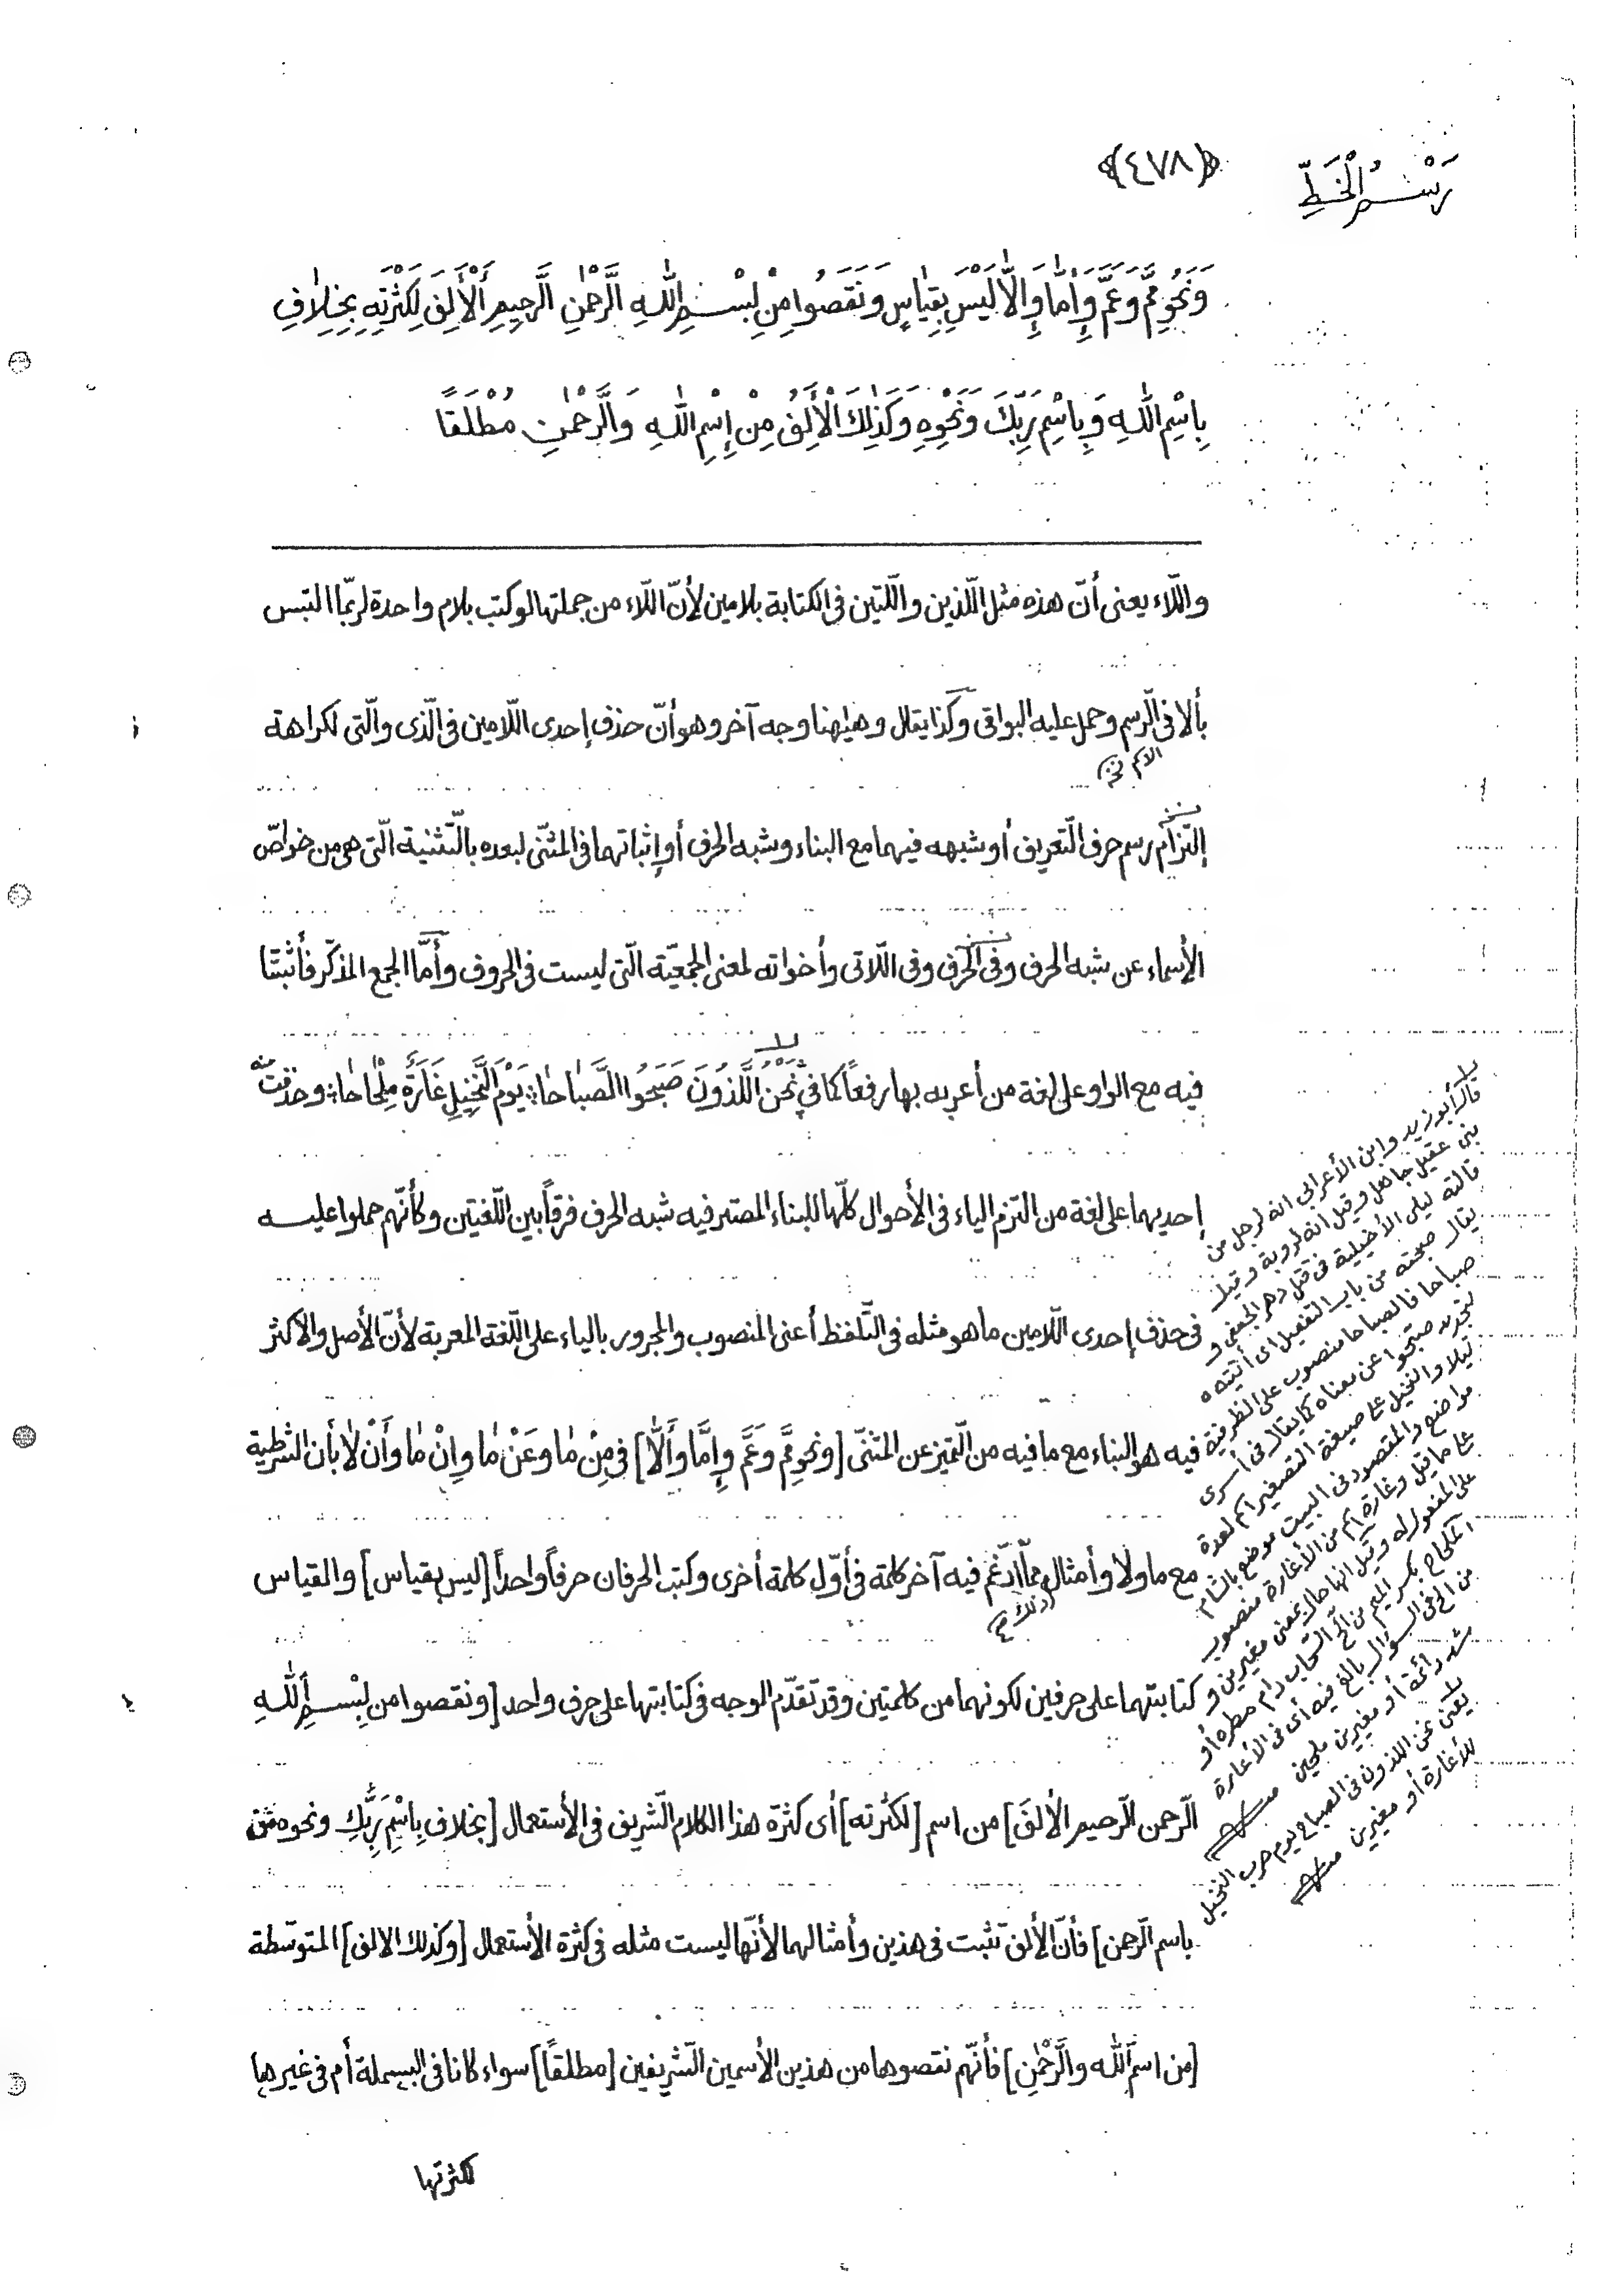 رَسْمُ الْخَطِّ
﴿٤٧٨﴾
وَنَحْوِ مِمَّ وَعَمَّ وَإِمّٰا وَإِلّٰا لَيْسَ بِقِيٰاسٍ وَنَقَصُوا مِنْ بِسْمِ اللّٰهِ الرَّحْمٰنِ الرَّحِيمِ الْأَلِفَ لِكَثْرَتِهِ بِخِلٰافِ
بِاسْمِ اللّٰهِ وَبِاسْمِ رَبِّكَ وَنَحْوِهِ وَكَذٰلِكَ الْأَلِفُ مِنْ إِسْمِ اللّٰهِ وَالرَّحْمٰنِ مُطْلَقًا
واللّاء يعنى أنّ هذه مثل اللّذين واللّتين فى الكتابة بلامين لأنّ اللّاء من جملتها لو كتب بلام واحدة لربّما التبس
بألا فى الرّسم وحمل عليه البواقى وكذا يقال وهيٰهنا وجه آخر وهو أنّ حذف إحدى اللّامين فى الّذى والّتى لكراهة
إلتزام رسم حرف التّعريف أو شبهه فيهما مع البناء وشبه الحرف أو إثباتهما فى المثنّى لبعده بالتّثنية الّتى هى من خواصّ
الأسماء عن شبه الحرف وفى الحرف وفى اللّاتى وأخواته لمعنى الجمعيّة الّتى ليست فى الحروف وأمّا الجمع المذكّر فأثبتتا
فيه مع الواو على لغة من أعربه بها رفعاً كما فى نَحْنُ الَّذُونَ صَبَحُوا الصَّبٰاحٰا يَوْمَ النُّخَيْلِ غٰارَةً مِلْحٰاحٰا وحذفت
إحديهما على لغة من التزم الياء فى الأحوال كلّها للبناء المعتبر فيه شبه الحرف فرقاً بين اللّغتين وكأنّهم حملوا عليه
فى حذف إحدى اللّامين ما هو مثله فى التّلفظ أعنى المنصوب والمجرور بالياء على اللّغة المعربة لأنّ الأصل والأكثر
فيه هو البناء مع ما فيه من التّميز عن المثنّى [ونحو مِمَّ وَعَمَّ وإِمَّا وأَلّٰا] فى مِنْ مٰا وعَنْ مٰا وإِنْ مٰا وأَنْ لٰا بأن الشرطية
مع ما ولا وأمثال ممّا ادّغم فيه آخر كلمة فى أوّل كلمة أخرى وكتب الحرفان حرفاً واحداً [ليس بقياس] والقياس
كتابتهما على حرفين لكونهما من كلمتين وقد تقدّم الوجه فى كتابتها على حرف واحد [ونقصوا من بِسْمِ اللّٰهِ
الرّحمن الرّحيم الألفَ] من اسم [لكثرته] أى كثرة هذا الكلام الشّريف فى الأستعمال [بخلاف بِاسْمِ رَبِّكَ ونحوه مثل
باسم الرّحمن] فأنّ الألف تثبت فى هذين وأمثالهما لأنّها ليست مثله فى كثرة الأستعمال [وكذلك الالف] المتوسّطة
[من اسم اللّٰه والرَّحْمٰنِ] فأنّهم نقصوها من هذين الأسمين الشّريفين [مطلقاً] سواء كانا فى البسملة أم فى غيرها
لكثرتها
قال أبو زيد وابن الأعرابى انه لرجل من
بنى عقيل جاهل وقيل انه لروبة وقيل
قالته ليلى الأخيلية فى قتل دهر الجعفى و
يقال صبحته من باب التفعيل اى أتيته
صباحا فالصباحا منصوب على الظرفية
بتجريد صبّحوا عن معناه كما يقال فى أسرى
ليلا والنخيل على صيغة التصغير اسم لعدة
مواضع والمقصود فى البيت موضع بالشام
على ما قيل وغارة اسم من الأغارة منصوب
على المفعول له وقيل انها حال بمعنى مغيرين و
الملحاح بكسر الميم من الحّ السّحاب دام مطره أو
من الحّ فى السؤال بالغ فيه أى فى الأغارة
شديدة دائمة أو مغيرين ملحين
يعنى نحن اللذون فى الصباح يوم حرب النخيل
للأغارة أو مغيرين